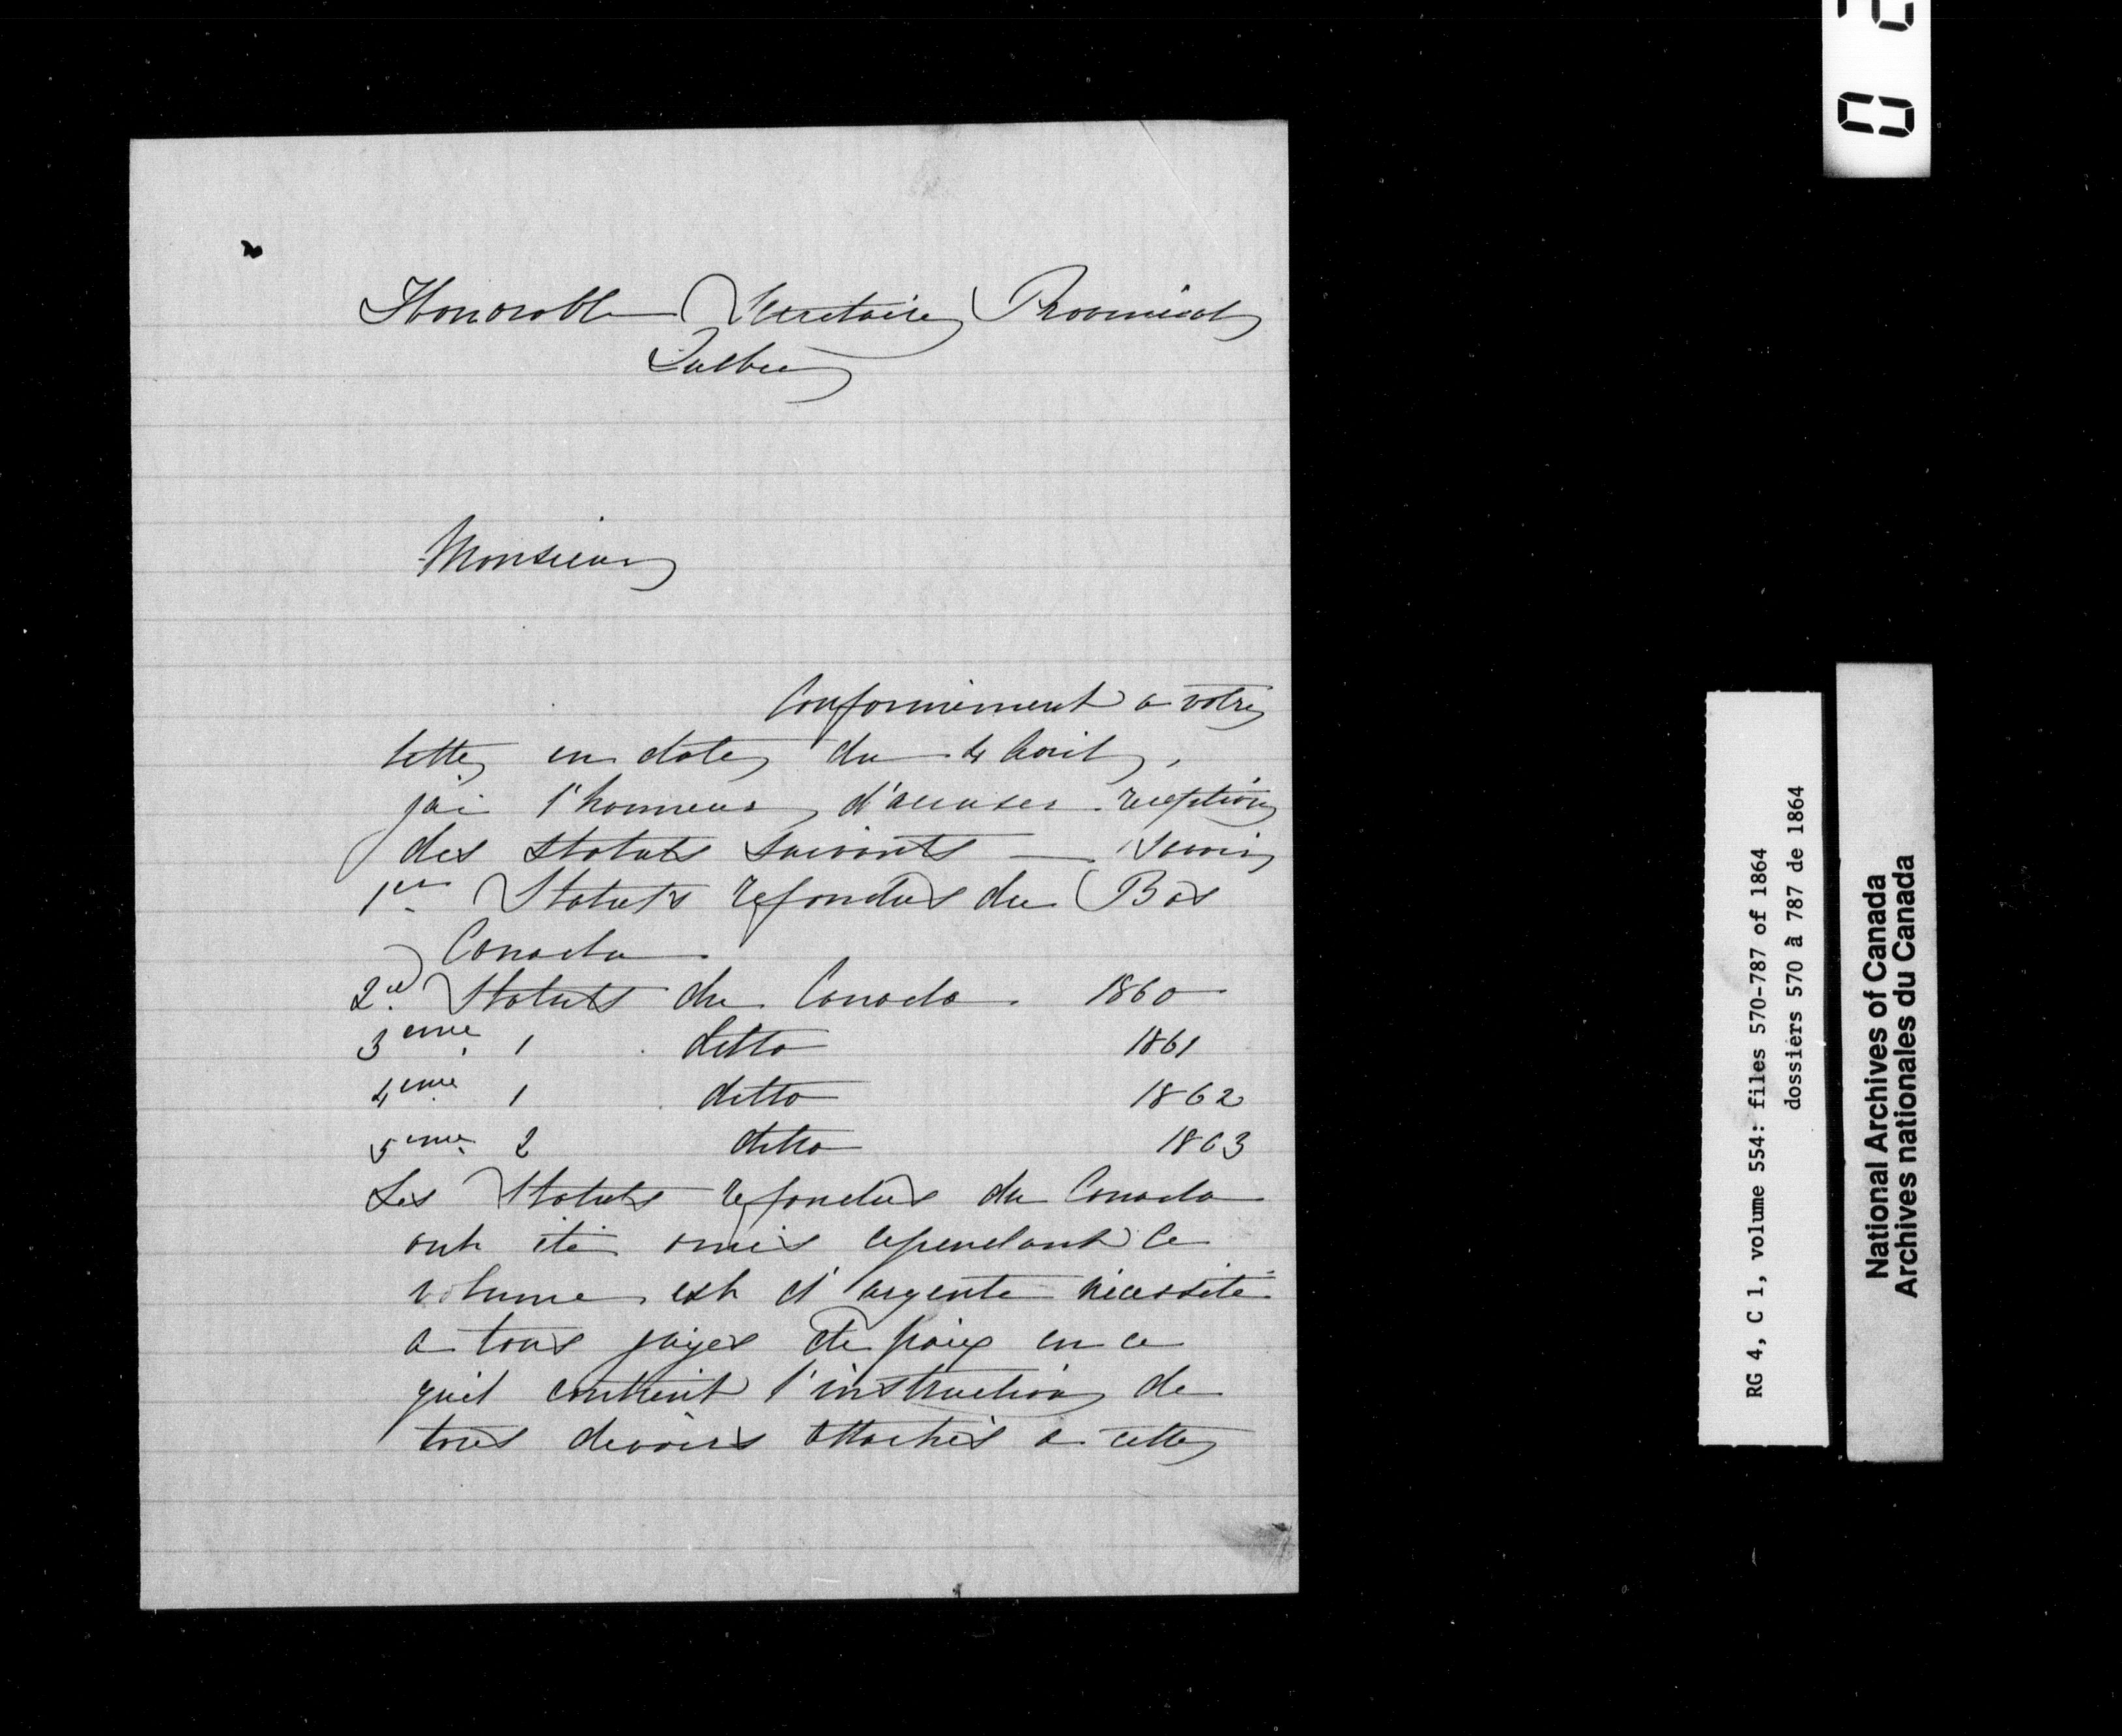 Honorable Secretaire Provincial
Quebec
Monsieur
Conformément a votre
lettre en date du 4 Avril,
jai l'honneur d'accuser reception
des statuts suivants — savoir
1er Statuts refondus du Bas
Canada
2d Statuts du Canada 1860
3eme 1 ditto 1861
4eme 1 ditto 1862
5eme 2 ditto 1863
Les Statuts refondus du Canada
ont été omis cependant ce
volume est d'urgente nécessité
a tous juges de paix en ce
quil contient l'instruction de
tous devoirs attachés a cette
RG 4, C 1, volume 554: files 570-787 of 1864
dossiers 570 à 787 de 1864
National Archives of Canada
Archives nationales du Canada